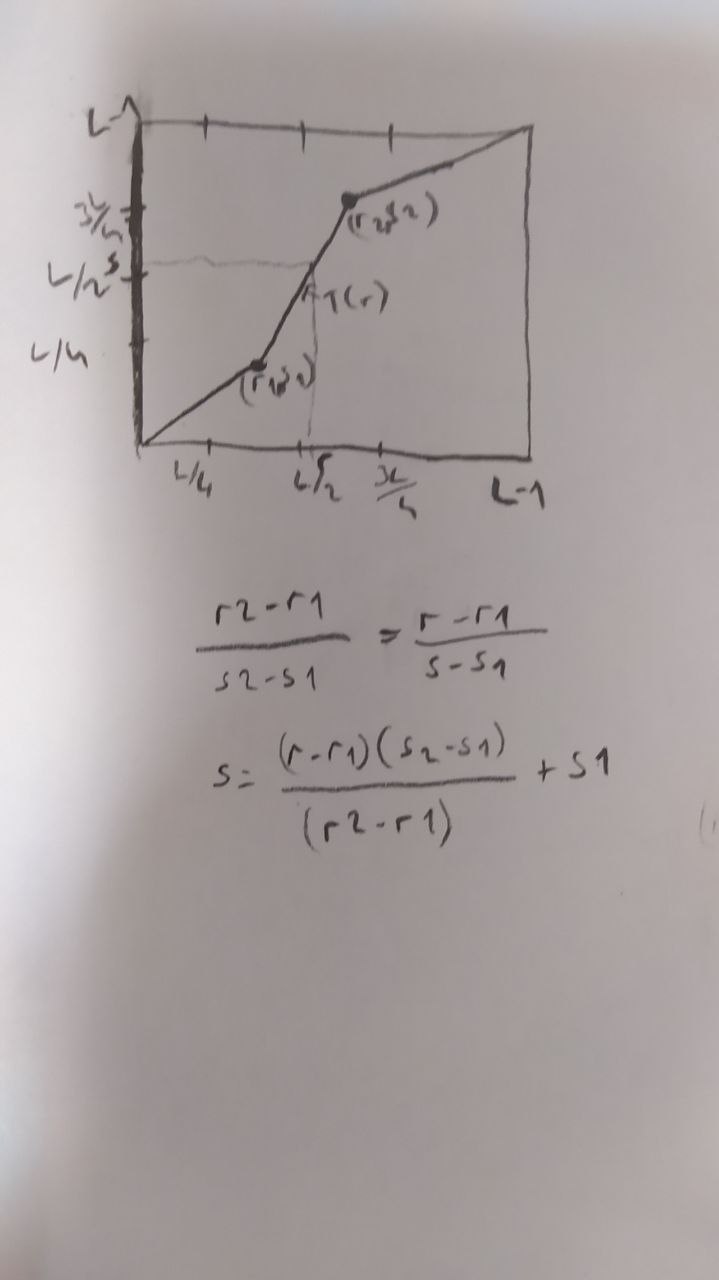 L-1
3L/4
(r2,s2)
s
L/2
T(r)
L/4
(r1,s1)
L/4
L/2
r
3L/4
L-1
r2-r1 / s2-s1 = r-r1 / s-s1
s= (r-r1)(s2-s1) / (r2-r1) + s1